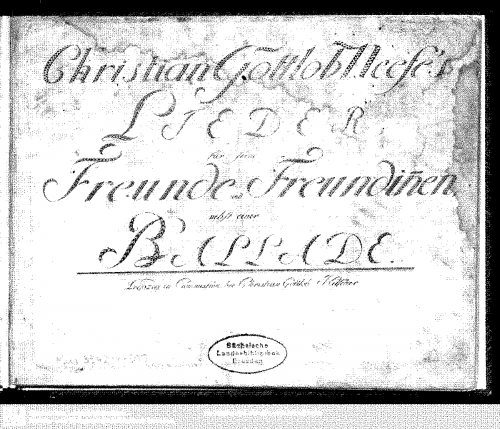 Christian Gottlob Neefe's
LIEDER
für seine
Freunde u. Freundiñen
nebst einer
BALLADE.
Leipzig in Commission bey Christian Gottlob Hilscher
Sächsische
Landesbibliothek
Dresden